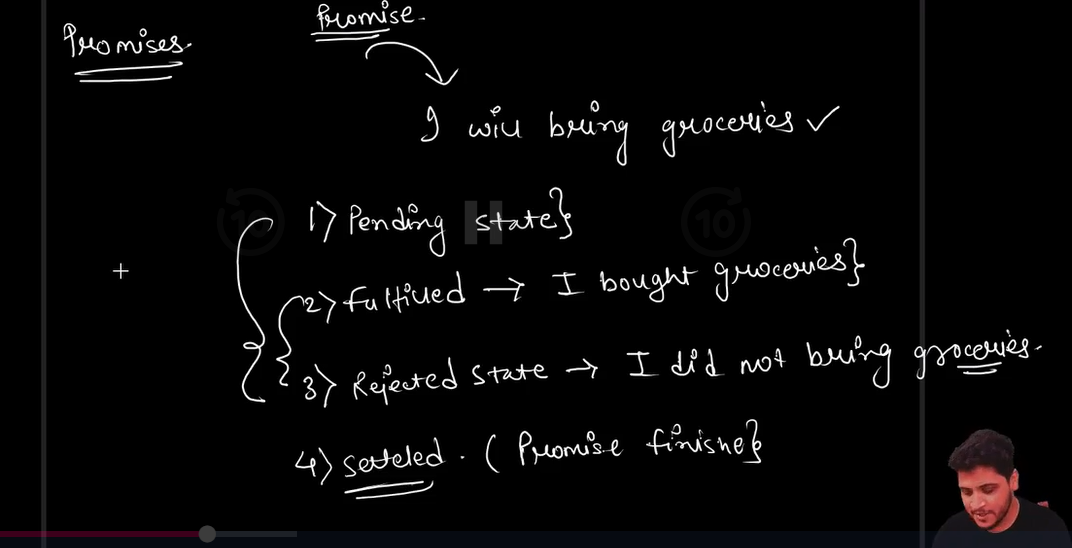 Promises.
Promise.
I will bring groceries ✓
1) Pending state}
2) Fulfilled → I bought groceries}
3) Rejected state → I did not bring groceries.
4) setteled. (Promise finishe}
10
10